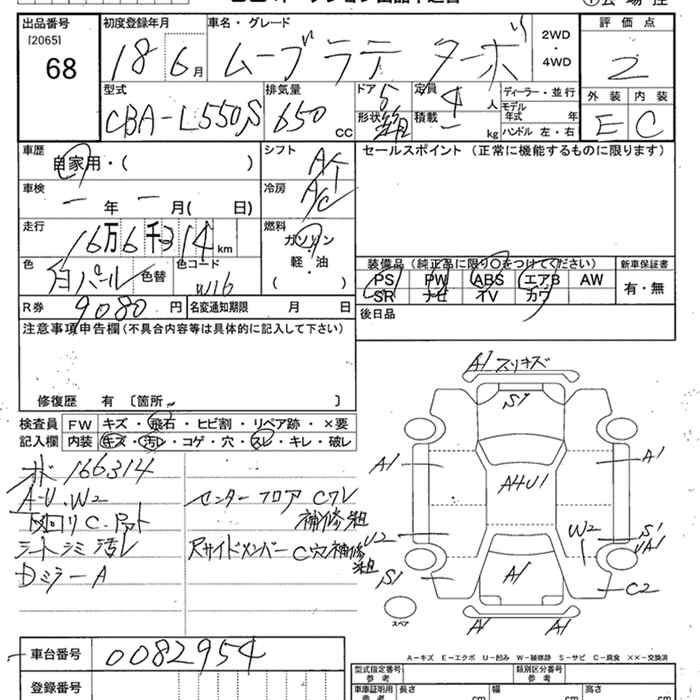 出品番号
[2065]
68
初度登録年月
18 6月
車名・グレード
ムーブ ラテ ターボ
2WD
・
4WD
評価点
2
外装 内装
E C
型式
CBA-L550S
排気量
650 CC
ドア 5
形状 箱
定員 4 人
積載 ー kg
ディーラー・並行
モデル
年式 年
ハンドル 左・右
車歴
自家用・( )
シフト
冷房 A/C
車検
ー年 ー月( 日)
走行
16万6千314km
燃料
ガソリン
・
軽・油
( )
色
白パール
色替
色コード
W16
R券 9080 円
名変通知期限 月 日
セールスポイント (正常に機能するものに限ります)
装備品(純正品に限り○をつけてください)
PS PW ABS エアB AW
SR ナビ TV カワ
新車保証書
有・無
後日品
注意事項申告欄(不具合内容等は具体的に記入して下さい)
修復歴 有 〔箇所
検査員
記入欄
FW キズ・飛石・ヒビ割・リペア跡・×要
内装 キズ・汚レ・コゲ・穴・スレ・キレ・破レ
166314
A-U.W2
シートシミ汚レ
Dミラー A
センターフロア Cワレ
補修
Rサイドメンバー C穴補修
A1 スリキズ
S1
A1
A1
A4U1
W2
S1
S1
A1
C2
A1
A1
スペア
A-キズ E-エクボ U-凹み W-補修跡 S-サビ C-腐食 ××-交換済
車台番号 0082954
登録番号
型式指定番号
参考
類別区分番号
参考
車庫証明用
参考
長さ cm
幅 cm
高さ cm